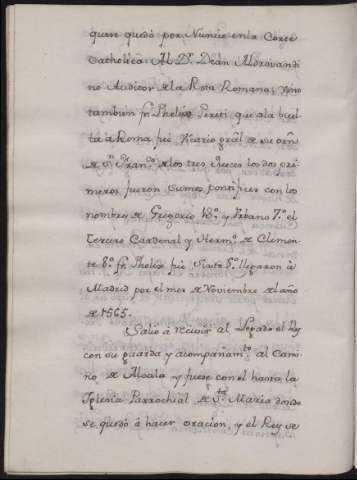 quan quedó por Nuncio en la Corte
Catholica: Al Dr. Dean Aldrovandi
no Auditor de la Rota Romana; Vino
tambien fr. Phelix Pereti que a la buel
ta a Roma fué Vicario gral de su orñ
de Sn. Franco. de los tres Jueces los dos pri
meros fueron Sumos pontifices con los
nombres de Gregorio 13º. y Urbano 7.º el
tercero Cardenal y Hermo. de Clemen
te 8º. fr. Phelix fué Sixto 5º. llegaron à
Madrid por el mes de Noviembre del año
de 1565.
Salió à recivir al Legado el Rey
con su guarda y acompañamto. al Cami
no de Alcala y fuese con el hasta la
Iglesia Parrochial de Sta. Maria donde
se quedó à hacer oracion, y el Rey se